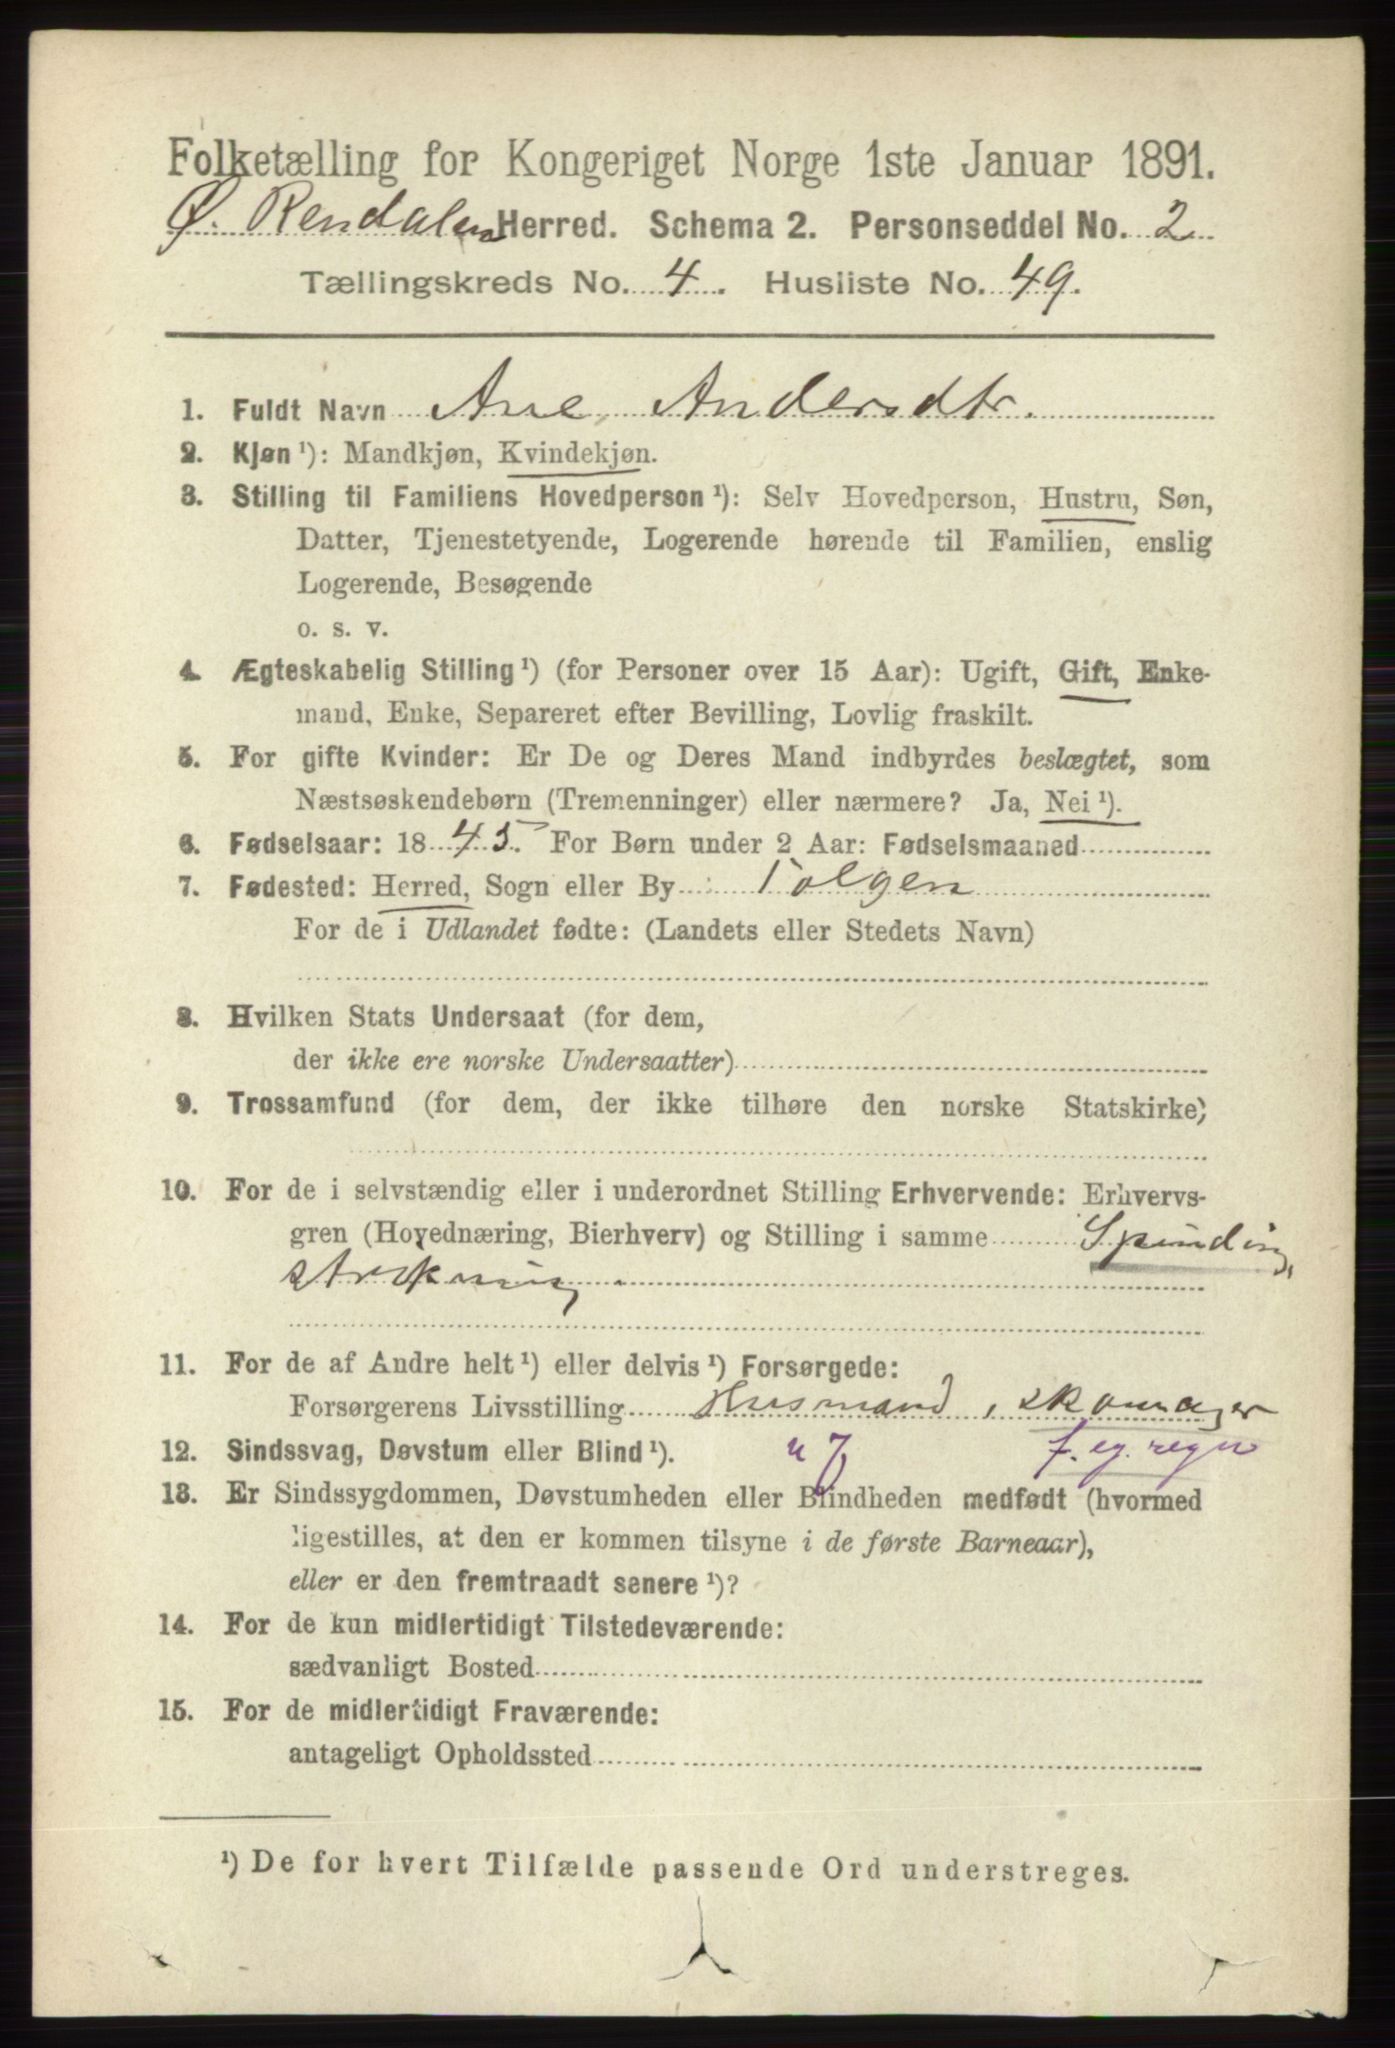 Folketælling for Kongeriget Norge 1ste Januar 1891.
Ø. Rendalen Herred. Schema 2. Personseddel No. 2
Tællingskreds No. 4. Husliste No. 49.
1. Fuldt Navn Ane Andersdtr.
2. Kjøn ¹): Mandkjøn, Kvindekjøn.
3. Stilling til Familiens Hovedperson ¹): Selv Hovedperson, Hustru, Søn,
Datter, Tjenestetyende, Logerende hørende til Familien, enslig
Logerende, Besøgende
o. s. v.
4. Ægteskabelig Stilling ¹) (for Personer over 15 Aar): Ugift, Gift, Enke-
mand, Enke, Separeret efter Bevilling, Lovlig fraskilt.
5. For gifte Kvinder: Er De og Deres Mand indbyrdes beslægtet, som
Næstsøskendebørn (Tremenninger) eller nærmere? Ja, Nei ¹).
6. Fødselsaar: 1845. For Børn under 2 Aar: Fødselsmaaned
7. Fødested: Herred, Sogn eller By Tolgen
For de i Udlandet fødte: (Landets eller Stedets Navn)
8. Hvilken Stats Undersaat (for dem,
der ikke ere norske Undersaatter)
9. Trossamfund (for dem, der ikke tilhøre den norske Statskirke)
10. For de i selvstændig eller i underordnet Stilling Erhvervende: Erhvervs-
gren (Hovednæring, Bierhverv) og Stilling i samme Spinding,
strikning
11. For de af Andre helt ¹) eller delvis ¹) Forsørgede:
Forsørgerens Livsstilling Husmand, skomager
12. Sindssvag, Døvstum eller Blind ¹). f. eg. regn
13. Er Sindssygdommen, Døvstumheden eller Blindheden medfødt (hvormed
ligestilles, at den er kommen tilsyne i de første Barneaar),
eller er den fremtraadt senere ¹)?
14. For de kun midlertidigt Tilstedeværende:
sædvanligt Bosted
15. For de midlertidigt Fraværende:
antageligt Opholdssted
¹) De for hvert Tilfælde passende Ord understreges.